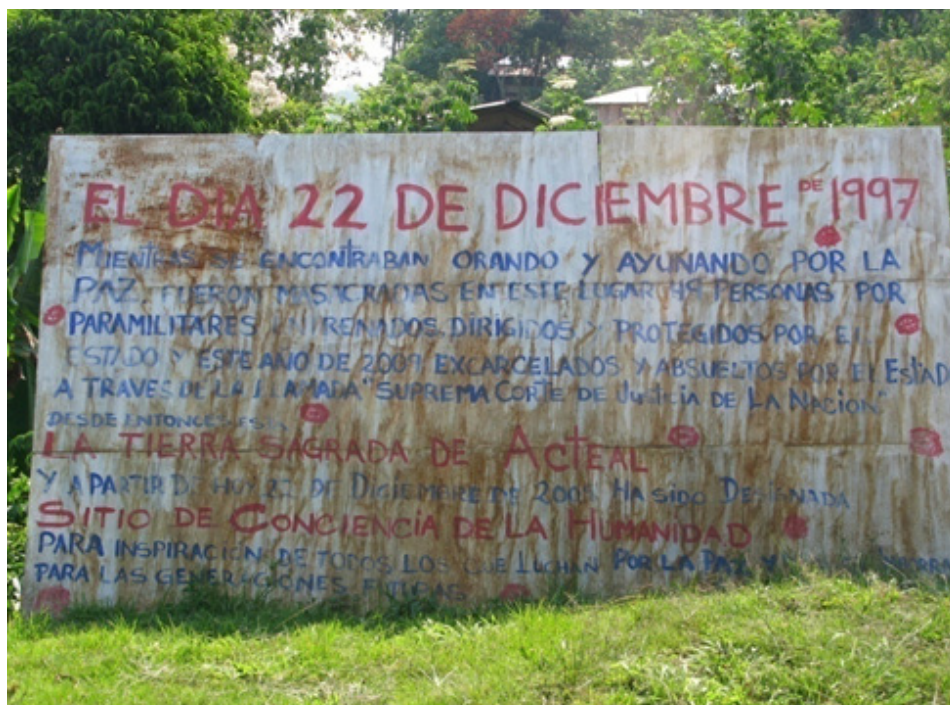 EL DIA 22 DE DICIEMBRE DE 1997
MIENTRAS SE ENCONTRABAN ORANDO Y AYUNANDO POR LA
PAZ, FUERON MASACRADAS EN ESTE LUGAR 49 PERSONAS POR
PARAMILITARES ENTRENADOS DIRIGIDOS Y PROTEGIDOS POR EL
ESTADO Y ESTE AÑO DE 2009 EXCARCELADOS Y ABSUELTOS POR EL ESTAD
A TRAVES DE LA LLAMADA "SUPREMA CORTE DE JUSTICIA DE LA NACION"
DESDE ENTONCES ES
LA TIERRA SAGRADA DE ACTEAL
Y A PARTIR DE HOY 22 DE DICIEMBRE DE HA SIDO DESIGNADA
SITIO DE CONCIENCIA DE LA HUMANIDAD
PARA INSPIRACION DE TODOS LOS QUE LUCHAN POR LA PAZ Y
PARA LAS GENERACIONES FUTURAS